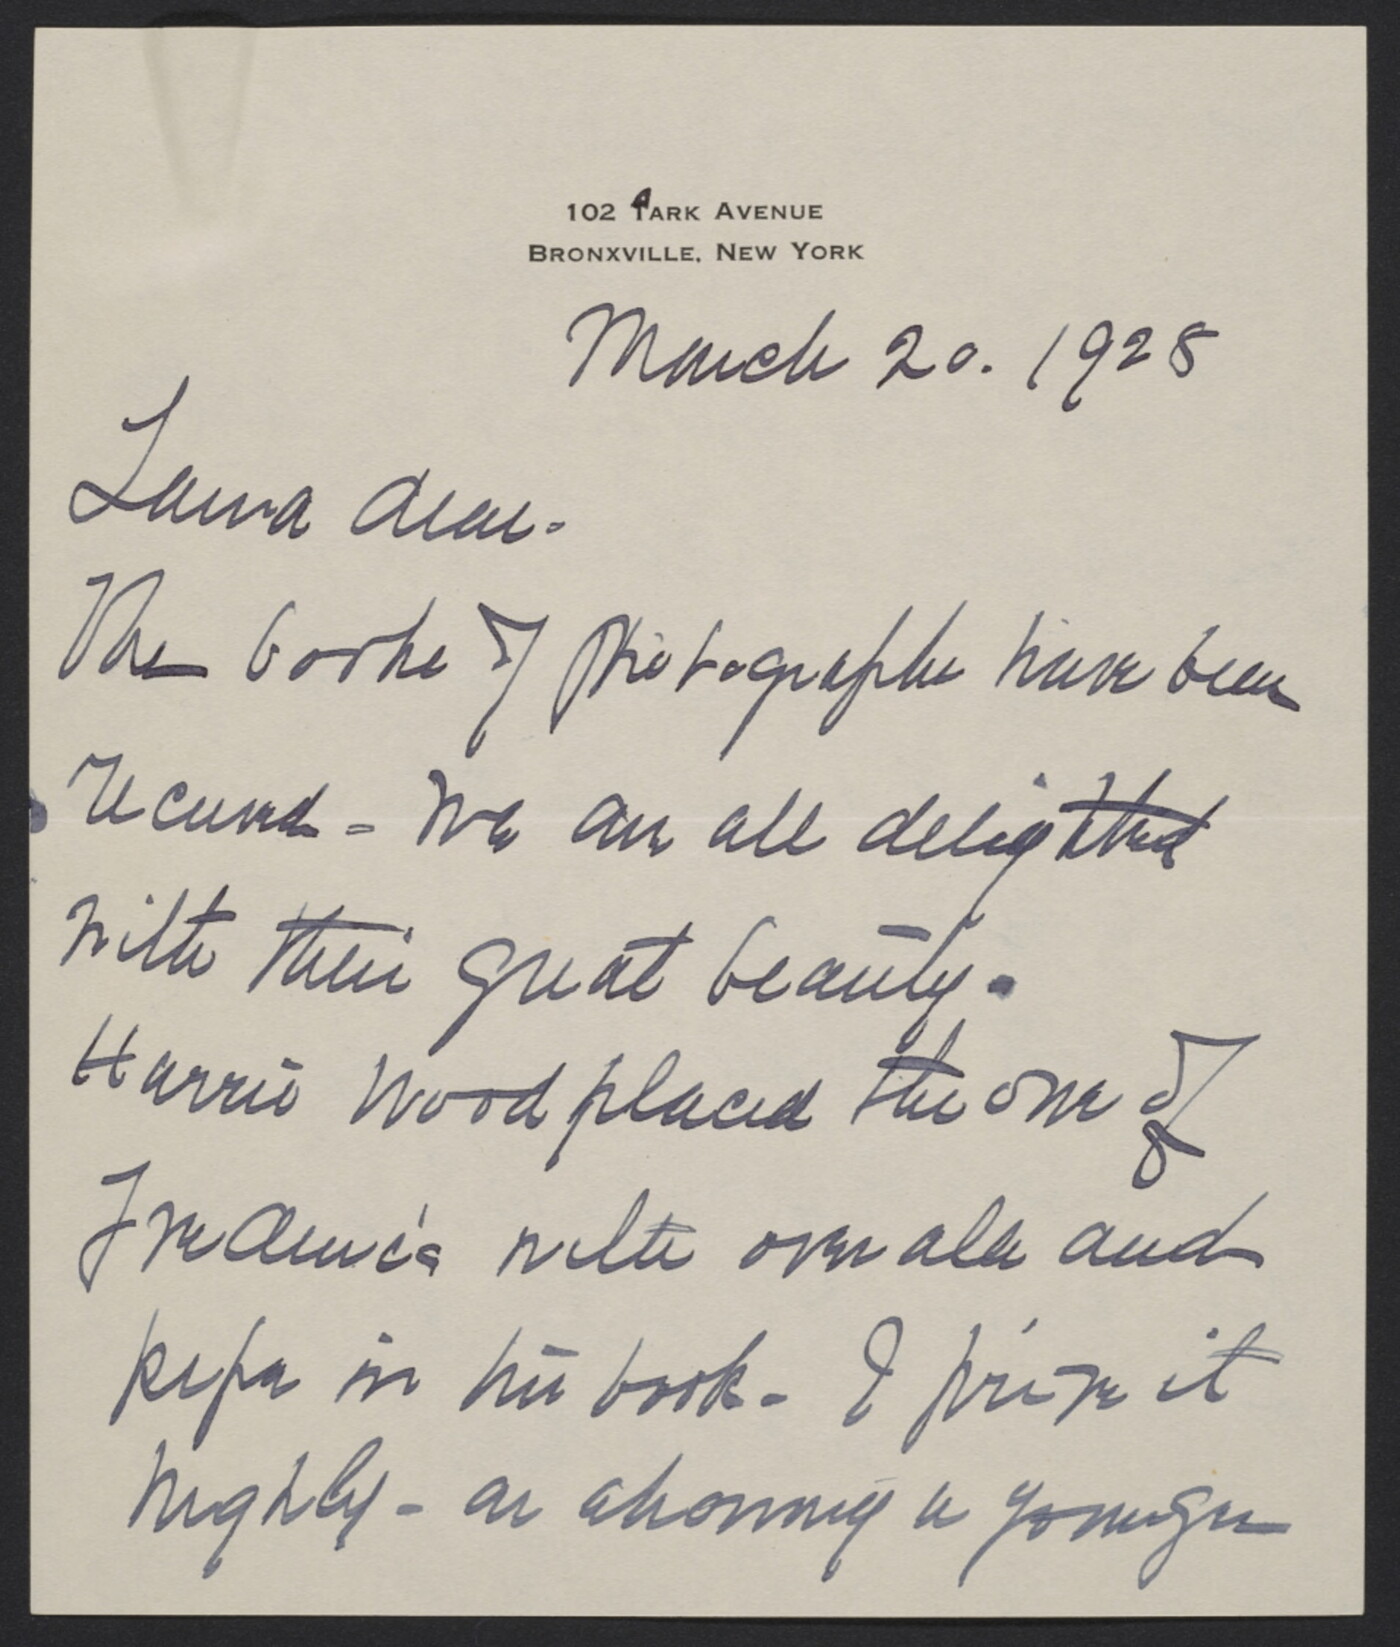 102 Park Avenue
Bronxville, New York
March 20. 1928
Laura dear.
The books of photographs have been
received - We are all delighted
with their great beauty.
Harris Wood placed the one of
Frederic's with overalls and
pipe in his book - I prize it
highly - as showing a younger